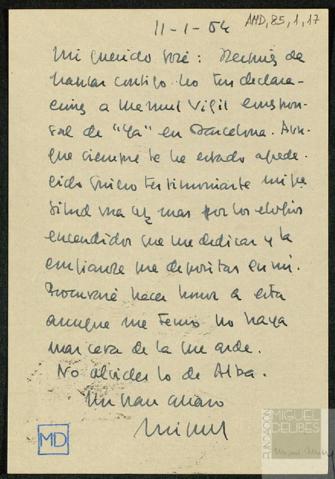 AMD,85,1,17
11-1-54
Mi querido José: Después de
hablar contigo he leído declara-
ciones a Manuel Vigil corresponsal
sal de "Ya" en Barcelona. Aun-
que siempre te he estado agrade-
cido quiero testimoniarte mi gra-
titud una vez más por los elogios
encendidos que me dedicas y la
confianza que depositas en mí.
Procuraré hacer honor a esta
aunque me temo no haya
mas cera de la que arde.
No olvides lo de Alba.
Un gran abrazo
Miguel
MD
FUNDACIÓN
MIGUEL
DELIBES